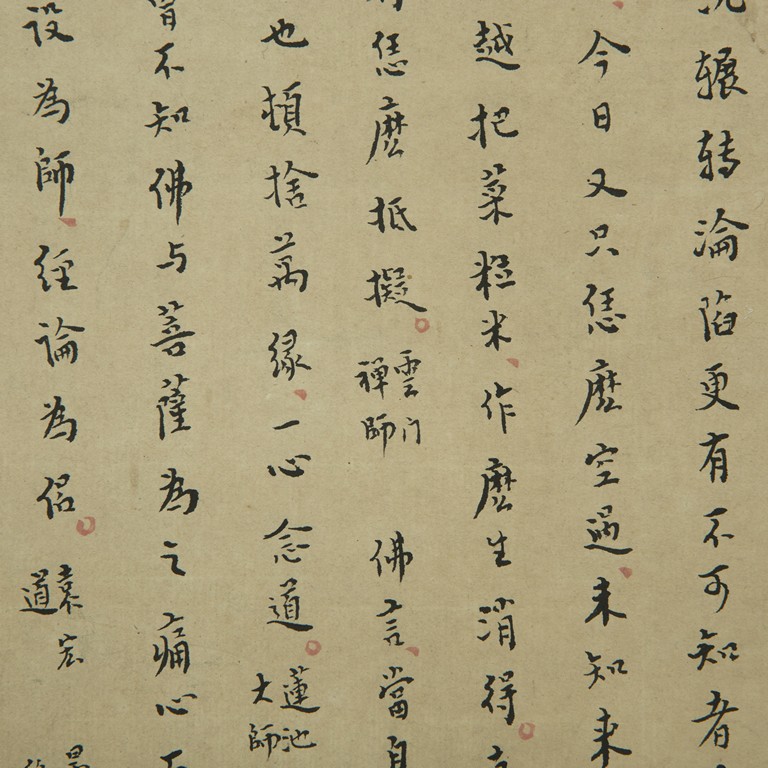 辗转淪陷更有不可知者
今日又只恁麽空過未知来
越把菜粒米作麽生消得
恁麽抵擬 雲门禅師 佛言當自
也頓捨萬緣一心念道 蓮池大師
曾不知佛与菩薩為之痛心
設為師經論為侶 袁宏道